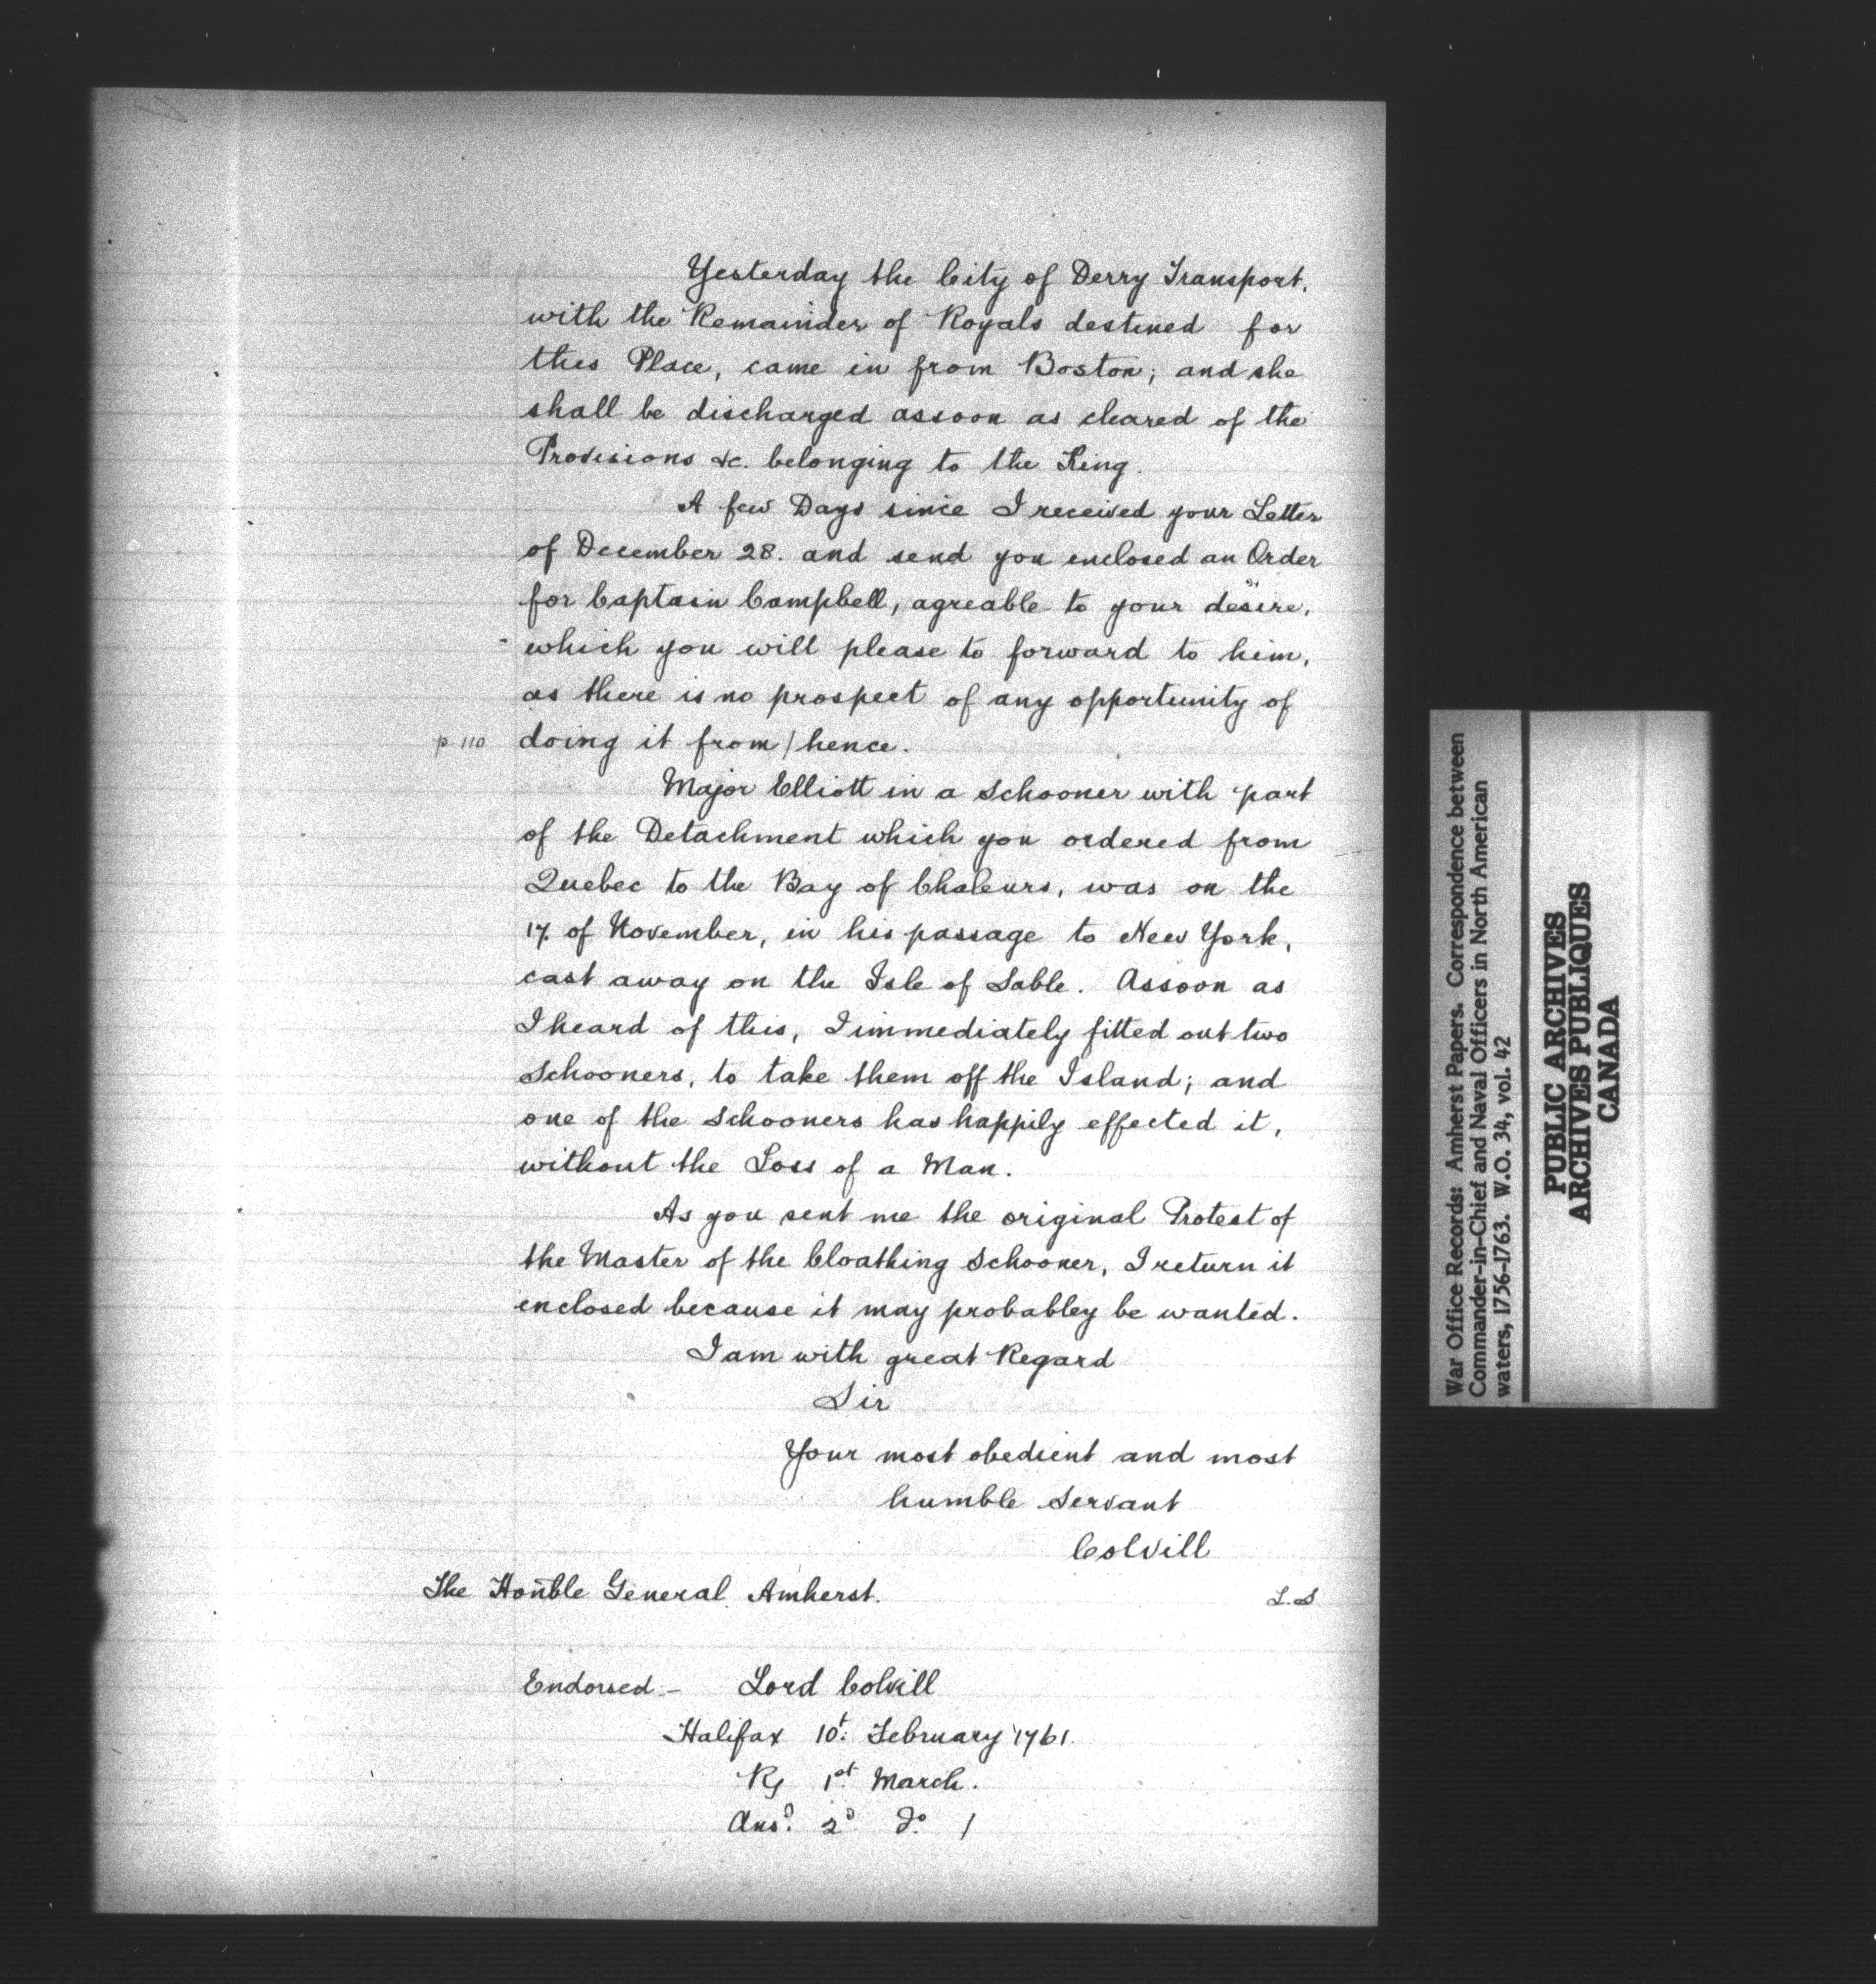 Yesterday the City of Derry Transport,
with the Remainder of Royals destined for
this Place, came in from Boston; and she
shall be discharged assoon as cleared of the
Provisions &c. belonging to the King.
A few Days since I received your Letter
of December 28. and send you enclosed an Order
for Captain Campbell, agreable to your desire,
which you will please to forward to him,
as there is no prospect of any opportunity of
p 110 doing it from / hence.
Major Elliott in a Schooner with part
of the Detachment which you ordered from
Quebec to the Bay of Chaleurs, was on the
17. of November, in his passage to New York,
cast away on the Isle of Sable. Assoon as
I heard of this, I immediately fitted out two
Schooners, to take them off the Island; and
one of the Schooners has happily effected it,
without the Loss of a Man.
As you sent me the original Protest of
the Master of the Cloathing Schooner, I return it
enclosed because it may probabley be wanted.
I am with great Regard
Sir
Your most obedient and most
humble Servant
Colvill
The Honble General Amherst.
L.S
Endorsed - Lord Colvill
Halifax 10t: February 1761.
R 1st March.
Ansd. 2d Do. /
War Office Records: Amherst Papers. Correspondence between
Commander-in-Chief and Naval Officers in North American
waters, 1756-1763. W.O. 34, vol. 42
PUBLIC ARCHIVES
ARCHIVES PUBLIQUES
CANADA